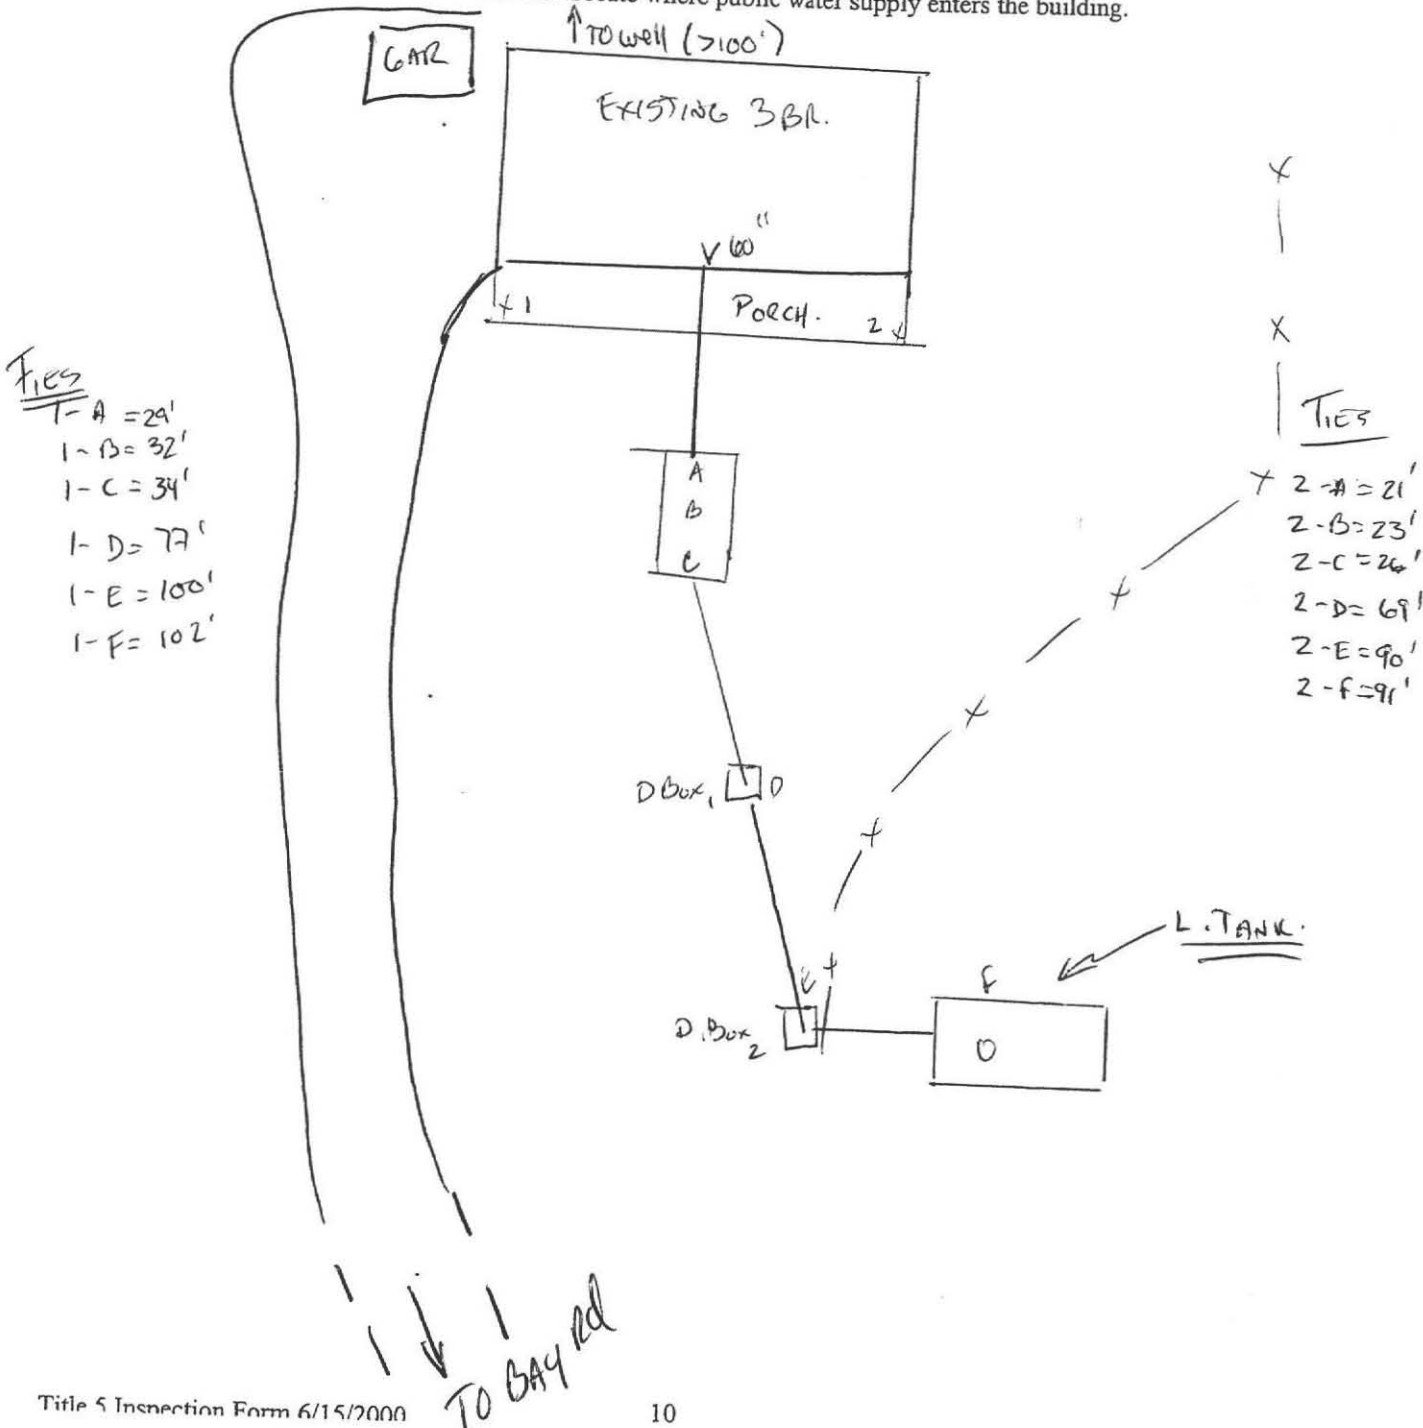 where public water supply enters the building.
↑ TO well (>100')
GAR
EXISTING 3BR.
V 60"
x 1
PORCH.
2 x
TIES
1- A = 29'
1- B = 32'
1- C = 34'
1- D = 77'
1- E = 100'
1- F = 102'
A
B
C
TIES
2 - A = 21'
2 - B = 23'
2 - C = 26'
2 - D = 69'
2 - E = 90'
2 - F = 91'
D Box 1
D
E
D. Box 2
F
O
L. TANK.
TO BAY Rd
Title 5 Inspection Form 6/15/2000
10